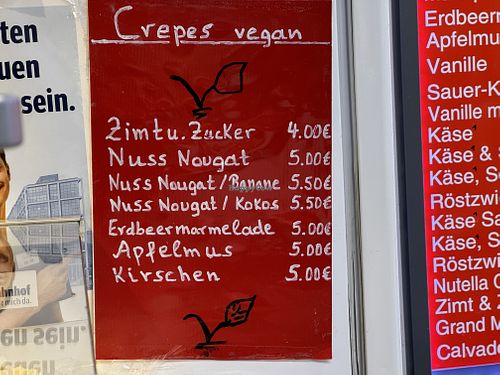 Crepes vegan
Zimt u. Zucker 4.00€
Nuss Nougat 5.00€
Nuss Nougat / Banane 5.50€
Nuss Nougat / Kokos 5.50€
Erdbeermarmelade 5.00€
Apfelmus 5.00€
Kirschen 5.00€
ten
uen
sein.
nhof
mich da.
Erdbeerm
Apfelmu
Vanille
Sauer-K
Vanille m
Käse
Käse &
Käse, Sc
Röstzwi
Käse Sa
Käse,
Röstzwi
Nutella C
Zimt &
Grand M
Calvade